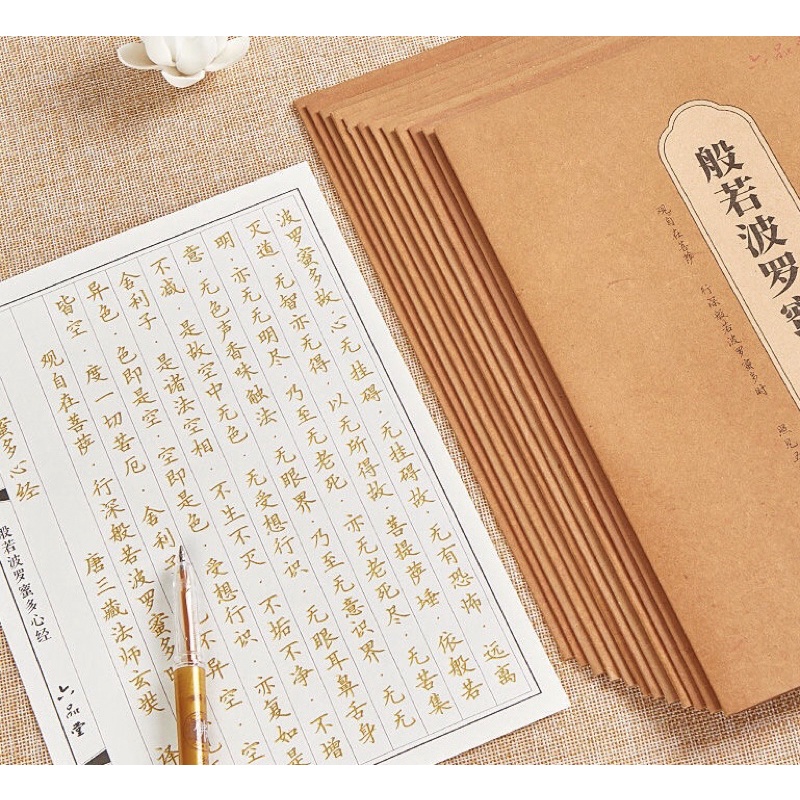 蜜多心经
唐三藏法师玄奘 译
观自在菩萨·行深般若波罗蜜多
皆空·度一切苦厄·舍利 不异空·空
异色·色即是空·空即是色·受想行识·亦复如是
舍利子·是诸法空相·不生不灭·不垢不净·不增
不减·是故空中无色·无受想行识·无眼耳鼻舌身
意·无色声香味触法·无眼界·乃至无意识界·无无
明·亦无无明尽·乃至无老死·亦无老死尽·无苦集
灭道·无智亦无得·以无所得故·菩提萨埵·依般若
波罗蜜多故·心无挂碍·无挂碍故·无有恐怖·远离
般若波罗蜜多心经
六品堂
六品
般若波罗蜜
观自在菩萨 行深般若波罗蜜多时 照见五